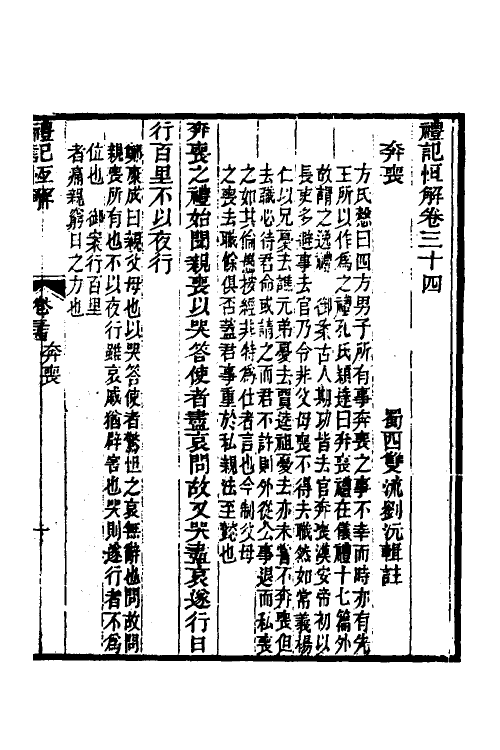 禮記恒解卷三十四
蜀西雙流劉沅輯註
奔喪
方氏慤曰四方男子所有事奔喪之事不幸而時亦有先
王所以作為之禮孔氏穎達曰奔喪禮在儀禮十七篇外
故謂之逸禮　御案古人期功皆去官奔喪漢安帝初以
長吏多避事去官乃令非父母喪不得去職然如常義楊
仁以兄憂去譙元弟憂去賈逵祖憂去亦未嘗不奔喪但
去職必待君命或請之而君不許則外從公事退而私喪
之如其倫愚按經非特為仕者言也今制父母
之喪去職餘俱否蓋君事重於私親法至懿也
奔喪之禮始聞親喪以哭答使者盡哀問故又哭盡哀遂行日
行百里不以夜行
鄭康成曰親父母也以哭答使者驚怛之哀無辭也問故問
親喪所有也不以夜行雖哀戚猶辟害也哭則遂行者不為
位也　御案行百里
者痛親窮日之力也
禮記恒解
卷三十四　奔喪
一